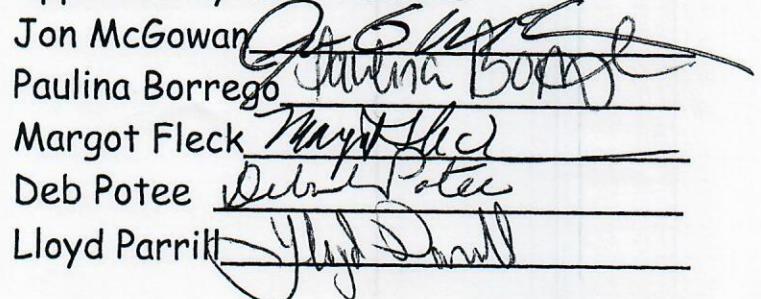 Jon McGowan
Paulina Borrego Paulina Borrego
Margot Fleck Margot Fleck
Deb Potee Deborah Potee
Lloyd Parrill Lloyd Parrill